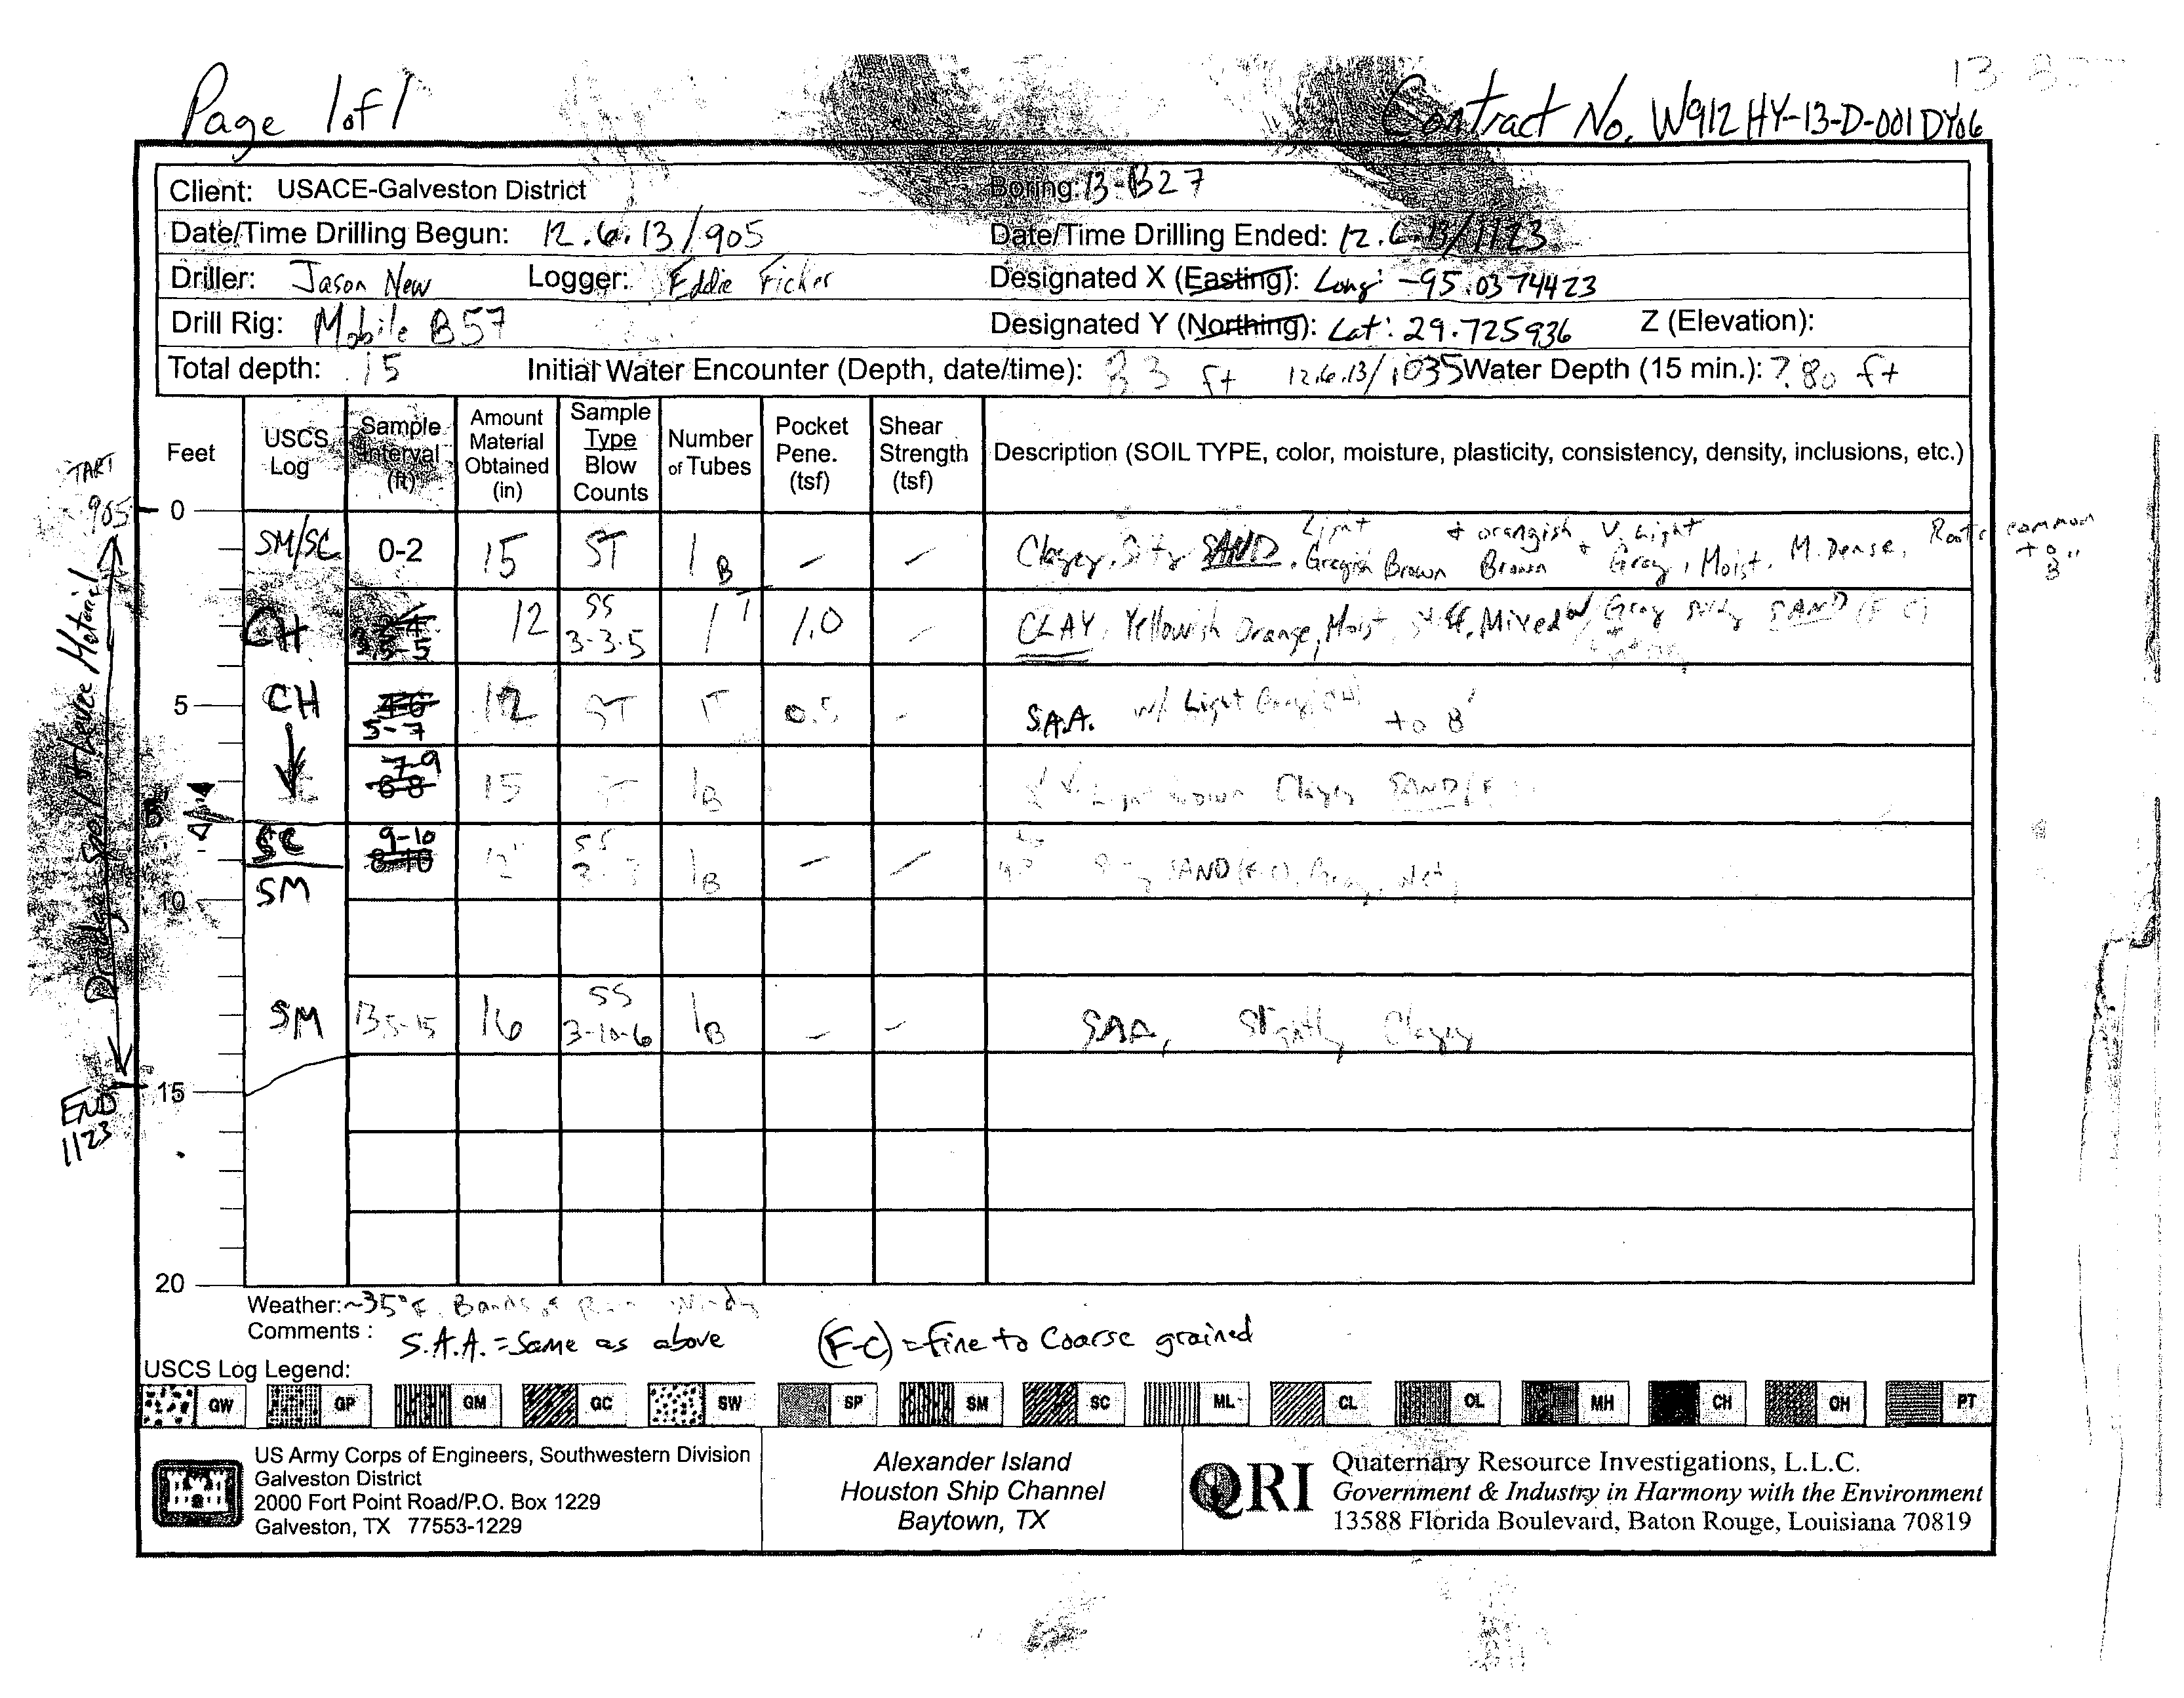 Page 1 of 1
Contract No. W912HY-13-D-001 DY06
Client: USACE-Galveston District
Boring: 13-B27
Date/Time Drilling Begun: 12.6.13/905
Date/Time Drilling Ended: 12.6.13/1123
Driller: Jason New Logger: Eddie Ficker
Designated X (Easting): Long: -95.0374423
Drill Rig: Mobile B57
Designated Y (Northing): Lat: 29.725936 Z (Elevation):
Total depth: 15 Initial Water Encounter (Depth, date/time): ft 12.6.13/1035 Water Depth (15 min.): 7.80 ft
Feet
USCS Log
Sample Interval (ft)
Amount Material Obtained (in)
Sample Type Blow Counts
Number of Tubes
Pocket Pene. (tsf)
Shear Strength (tsf)
Description (SOIL TYPE, color, moisture, plasticity, consistency, density, inclusions, etc.)
905
0
SM/SC 0-2 15 ST 1B - - Clayey, Silty SAND, Light Grayish Brown + orangish Brown + V. Light Gray, Moist, M. Dense, Roots common to 3"
CH 12 SS 3-3-5 1T 1.0 - CLAY, Yellowish Orange, Moist, Stiff, Mixed w/ Gray Silty SAND (F-C)
5
CH 5-7 12 ST 1T 0.5 - S.A.A. w/ Light to 8'
7-9 15 ST 1B Light Brown Clayey SAND
8'
SC 9-10 12" SS 1B - - SAND (F-C), Gray, Wet
SM
10
SM 13.5-15 16 SS 3-10-6 1B - - SAA, Slightly Clayey
15
END
1123
20
Dredge Spoil + Levee Material
Weather: ~35°F, Bands of Rain Windy
Comments: S.A.A. = Same as above (F-C) = fine to Coarse grained
USCS Log Legend:
GW GP GM GC SW SP SM SC ML CL OL MH CH OH PT
US Army Corps of Engineers, Southwestern Division
Galveston District
2000 Fort Point Road/P.O. Box 1229
Galveston, TX 77553-1229
Alexander Island
Houston Ship Channel
Baytown, TX
QRI
Quaternary Resource Investigations, L.L.C.
Government & Industry in Harmony with the Environment
13588 Florida Boulevard, Baton Rouge, Louisiana 70819